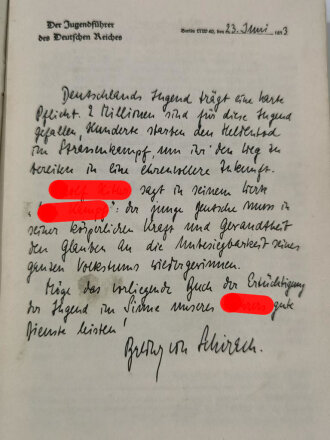 Der Jugendführer
des Deutschen Reiches
Berlin NW 40, den 23. Juni 1933
Deutschlands Jugend trägt eine harte
Pflicht. 2 Millionen sind für diese Jugend
gefallen, Hunderte starben den Heldentod
im Strassenkampf, um ihr den Weg zu
bereiten in eine ehrenvollere Zukunft.
sagt in seinem Werk
": der junge Deutsche muss in
seiner körperlichen Kraft und Gewandtheit
den Glauben an die Unbesiegbarkeit seines
ganzen Volkstums wiedergewinnen.
Möge das vorliegende Buch der Ertüchtigung
der Jugend im Sinne unseres gute
Dienste leisten!
Baldur von Schirach.